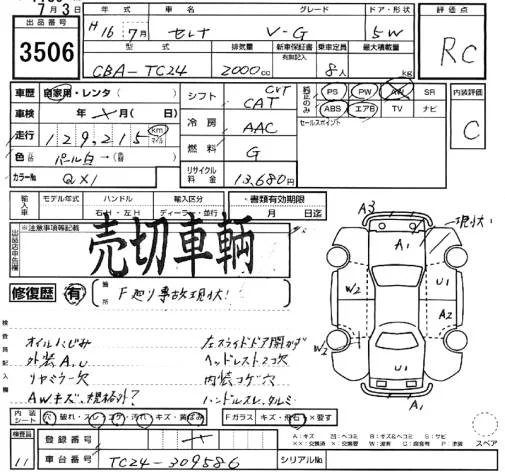 7月3日
出品番号
3506
年式 車名 グレード ドア・形状
H16年7月 セレナ V-G 5W
型式 排気量 新車保証書 乗車定員 最大積載量
有無記入
CBA-TC24 2000cc 8人 kg
評価点
RC
車歴 自家用・レンタ( )
車検 年 月( 日)
走行 129,215 km マイル
色 パール白→
カラーNo QX1
シフト CVT CAT
冷房 AAC
燃料 G
リサイクル料金 13,680円
純正のみ
PS PW AW SR
ABS エアB TV ナビ
セールスポイント
内装評価
C
輸入車 モデル年式 ハンドル 輸入区分
年 右H・左H ディーラー・並行
・書類有効期限
月 日迄
※注意事項等記載
出品店申告欄
売切車輌
修復歴 有 箇所 F廻り事故現状!
検査員記入欄
オイルにじみ
外装A,U
リヤミラー欠
AWキズ、規格外?
左スライドドア開かず
ヘッドレスト2コ欠
内装コゲ穴
ハンドルスレ、タルミ
A3
現状!
A1
U1
W2
A2
W2
U1
A1
内装シート 穴・破れ・スレ・コゲ・汚れ・キズ・黄ばみ
Fガラス キズ・飛石・×要す
スペア
検査員
11
登録番号
車台番号 TC24-309586
シリアルNo.